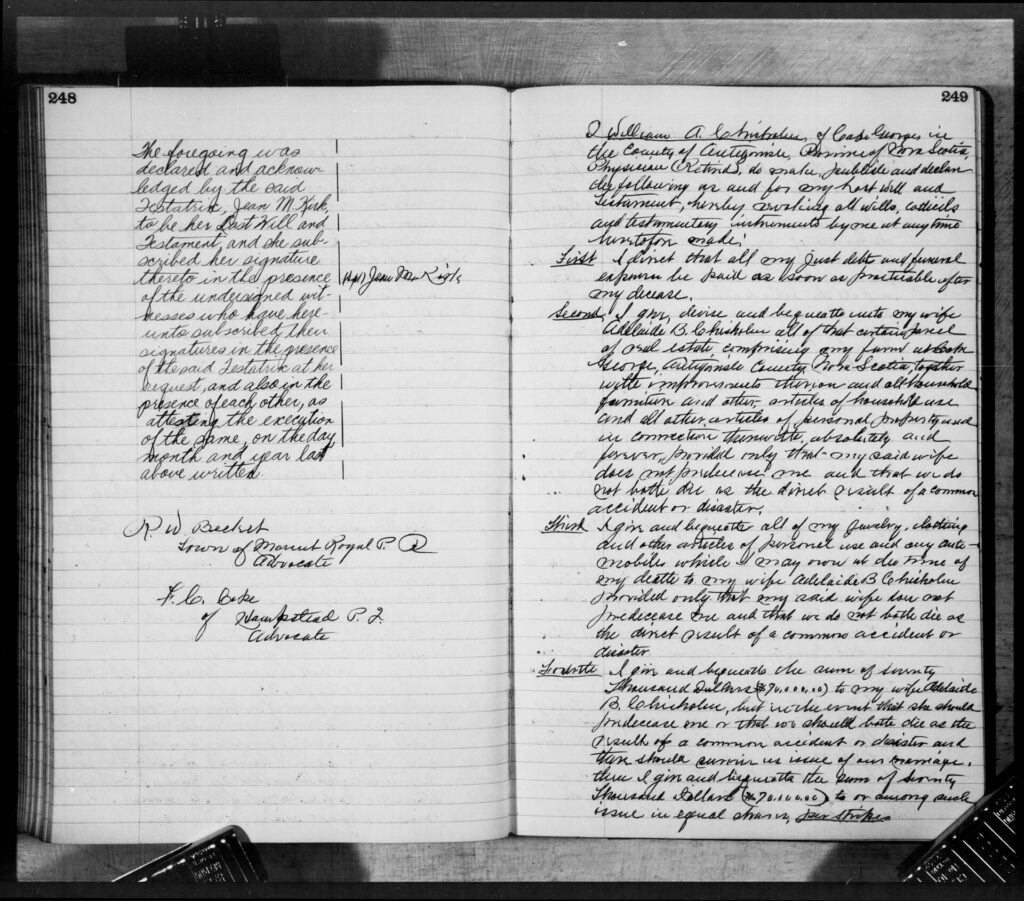 248
The foregoing was
declared and acknow-
ledged by the said
Testatrix, Jean M. Kirk,
to be her Last Will and
Testament, and she sub-
scribed her signature
thereto in the presence
of the undersigned wit-
nesses who have here-
unto subscribed their
signatures in the presence
of the said Testatrix at her
request, and also in the
presence of each other, as
attesting the execution
of the same, on the day
month and year last
above written.
Jean M. Kirk
R. W. Becket
Town of Mount Royal P. Q
Advocate
F. C. Cope
of Hampstead P. Q.
Advocate
249
I William A. Chisholm, of Cape George in
the County of Antigonish, Province of Nova Scotia,
Physician (Retired), do make, publish and declare
the following as and for my last will and
testament, hereby revoking all wills, codicils
and testamentary instruments by me at any time
heretofore made.
First I direct that all my just debts and funeral
expenses be paid as soon as practicable after
my decease.
Second I give, devise and bequeath unto my wife
Adelaide B. Chisholm all of that certain parcel
of real estate comprising my farm at Cape
George, Antigonish County, Nova Scotia, together
with improvements thereon and all household
furniture and other articles of household use
and all other articles of personal property used
in connection therewith, absolutely and
forever, provided only that my said wife
does not predecease me and that we do
not both die as the direct result of a common
accident or disaster.
Third I give and bequeath all of my jewelry, clothing
and other articles of personal use and any auto-
mobiles which I may own at the time of
my death to my wife Adelaide B Chisholm
provided only that my said wife does not
predecease me and that we do not both die as
the direct result of a common accident or
disaster
Fourth I give and bequeath the sum of seventy
Thousand Dollars ($70,000.00) to my wife Adelaide
B. Chisholm, but in the event that she should
predecease me or that we should both die as the
result of a common accident or disaster and
there should survive us issue of our marriage,
then I give and bequeath the sum of seventy
Thousand Dollars ($70,000.00) to or among such
issue in equal shares, per stirpes